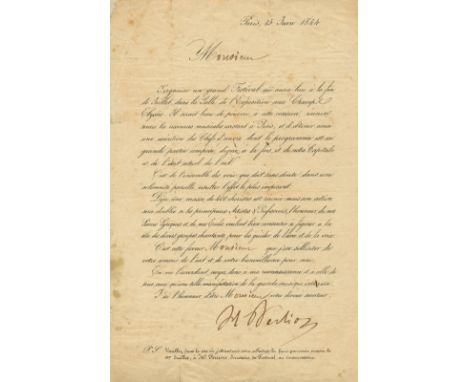 Paris, 25 Juin 1844
Monsieur
J'organise un grand Festival qui aura lieu à la fin
de Juillet, dans la Salle de l'Exposition aux Champs
Elysées. Il serait beau de pouvoir, à cette occasion, réunir
toutes les ressources musicales existant à Paris, et d'obtenir ainsi
une exécution des Chefs d'œuvre dont le programme est en
grande partie composé, digne à la fois, et de notre Capitale
et de l'état actuel de l'art.
C'est de l'ensemble des voix que doit sans doute dans une
solennité pareille, résulter l'effet le plus imposant.
Déjà une masse de choristes est réunie mais son action
sera doublée si les principaux Artistes
Lyriques et de nos Ecoles veulent bien consentir à figurer à la
tête de divers groupes chantants, pour les guider de l'âme et de la voix.
C'est cette faveur Monsieur que j'ose solliciter de
votre amour de l'art et de votre bienveillance pour moi.
En me l'accordant, croyez donc à ma reconnaissance et à celle de
tous ceux qu'une telle manifestation de la grande musique intéresse.
J'ai l'honneur d'être Monsieur votre dévoué serviteur
H Berlioz
P.S. Veuillez, dans le cas de